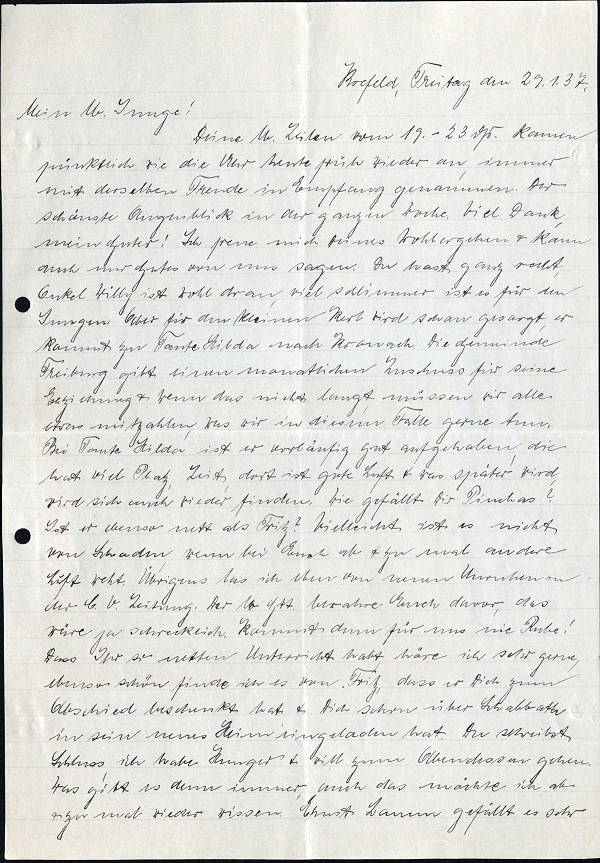 Krefeld, Freitag den 29.1.37.
Mein lb. Junge!
Deine lb. Zeilen vom 19. - 23 ds. kamen
pünktlich wie die Uhr heute früh wieder an, immer
mit derselben Freude in Empfang genommen. Der
schönste Augenblick in der ganzen Woche. Viel Dank,
mein Guter! Ich freue mich Deines Wohlergehen & kann
auch nur Gutes von uns sagen. Du hast ganz recht
Onkel Willy ist wohl dran, viel schlimmer ist es für den
Jungen. Aber für den kleinen Kerl wird schon gesorgt, er
kommt zu Tante Hilda nach Kronach. Die Gemeinde
Freiburg gibt einen monatlichen Zuschuss für seine
Erziehung & wenn das nicht langt, müssen wir alle
etwas mitzahlen, was wir in diesem Falle gerne tun.
Bei Tante Hilda ist er vorläufig gut aufgehoben, die
hat viel Platz, Zeit, dort ist gute Luft & was später wird,
wird sich auch wieder finden. Wie gefällt Dir Pinchas?
Ist er ebenso nett als Fritz? Vielleicht ist es nicht
von Schaden, wenn bei Euch ab & zu mal andere
Luft weht. Übrigens las ich eben von neuen Unruhen in
der C. V. Zeitung. Der lb. Gtt. bewahre Euch davor, das
wäre ja schrecklich. Kommt denn für uns nie Ruhe!
Dass Ihr so netten Unterricht habt höre ich sehr gerne,
ebenso schön finde ich es von Fritz, dass er Dich zum
Abschied beschenkt hat & Dich schon über Schabbath
in sein neues Heim eingeladen hat. Du schreibst
Schluss ich habe Hunger & will zum Abendessen gehen.
Was gibt es denn immer, auch das möchte ich ab
& zu mal wieder wissen. Ernst gefällt es sehr